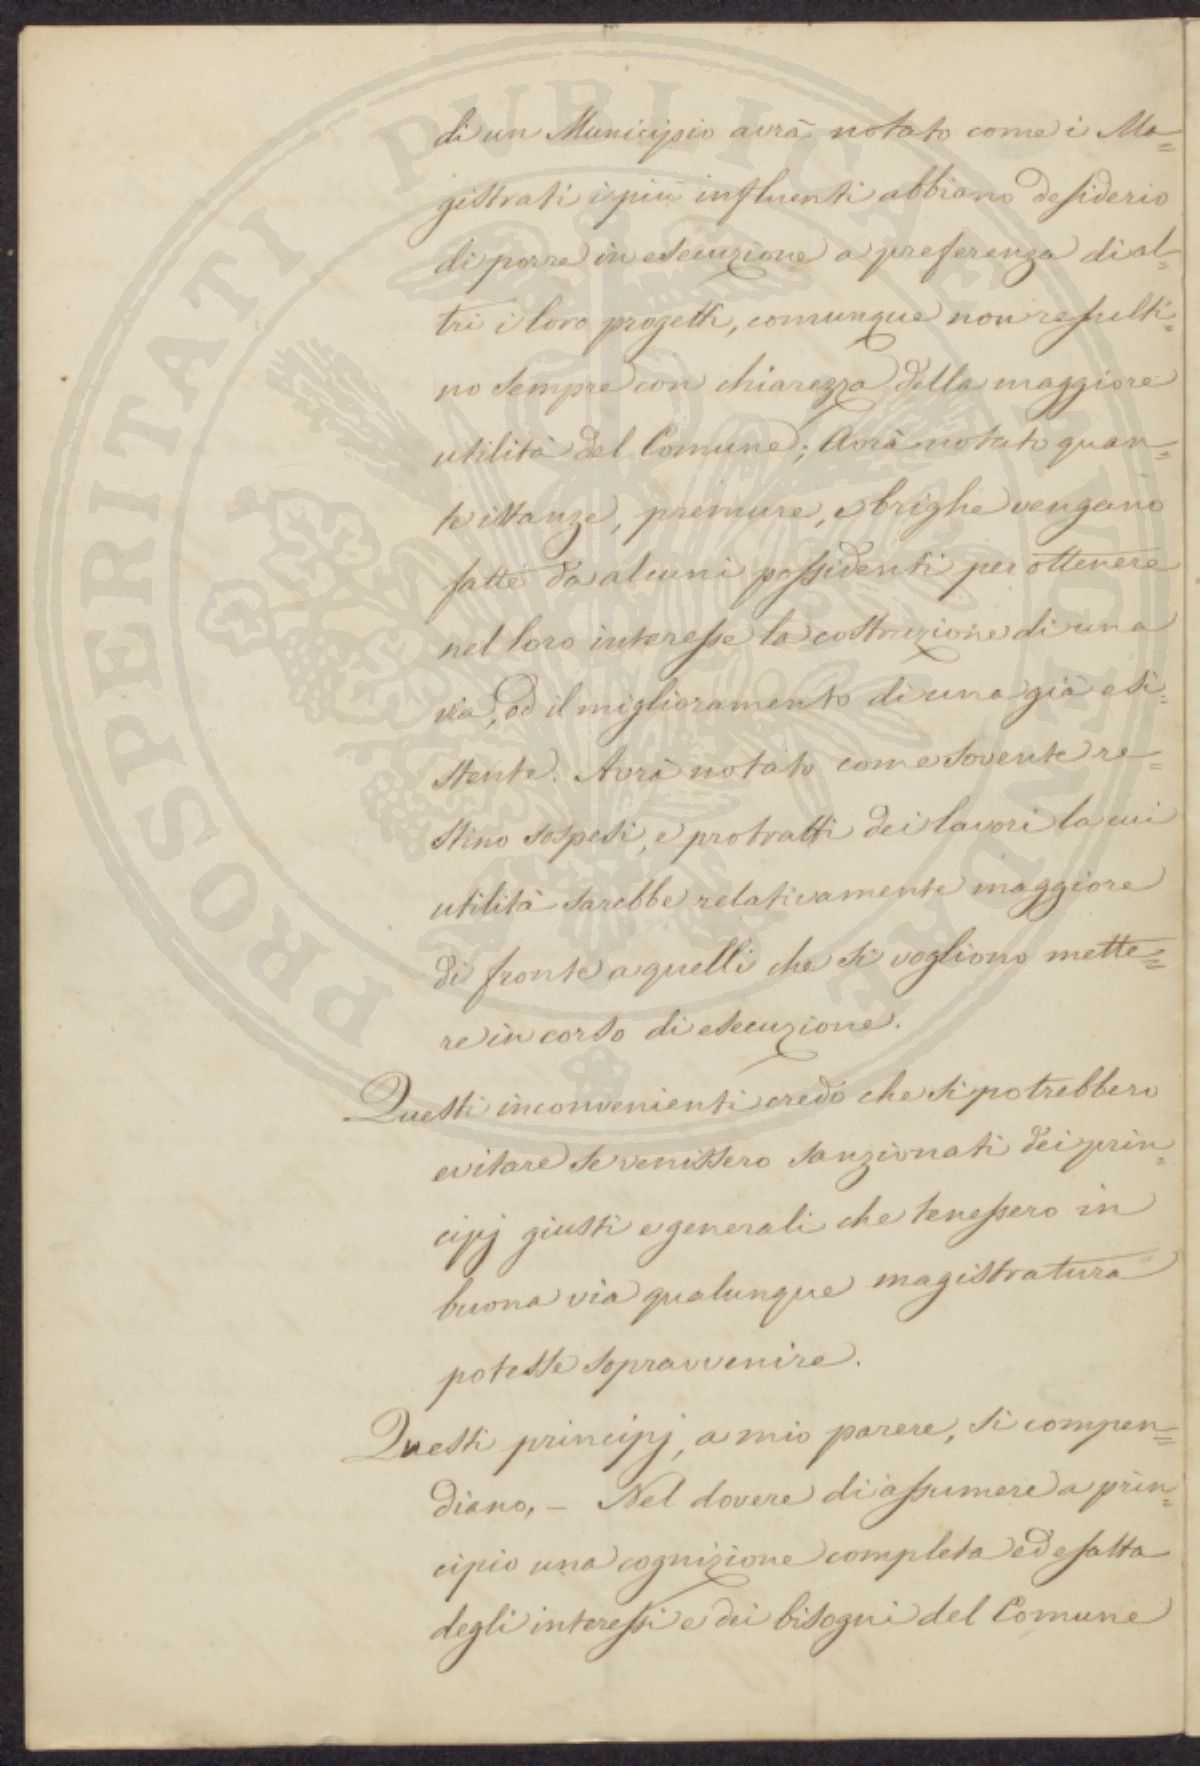 di un Municipio avrà notato come i Ma=
gistrati i più influenti abbiano desiderio
di porre in esecuzione a preferenza di al=
tri i loro progetti, comunque non resulti=
no sempre con chiarezza della maggiore
utilità del Comune; Avrà notato quan=
te istanze, premure, e brighe vengano
fatte da alcuni possidenti per ottenere
nel loro interesse la costruzione di una
via, od il miglioramento di una già esi=
stente. Avrà notato come sovente re=
stino sospesi, e protratti dei lavori la cui
utilità sarebbe relativamente maggiore
di fronte a quelli che si vogliono mette=
re in corso di esecuzione.
Questi inconvenienti credo che si potrebbero
evitare se venissero sanzionati dei prin=
cipj giusti e generali che tenessero in
buona via qualunque magistratura
potesse sopravvenire.
Questi principj, a mio parere, si compen=
diano, – Nel dovere di assumere a prin=
cipio una cognizione completa ed esatta
degli interessi e dei bisogni del Comune
PROSPERITATI PUBLICAE